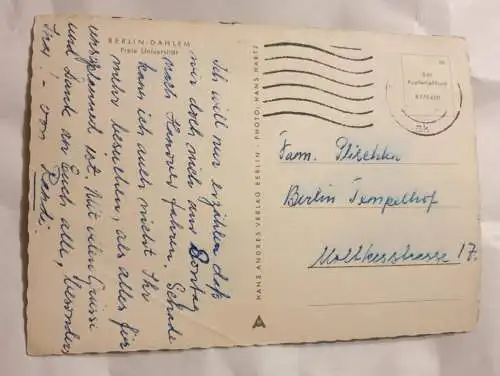 BERLIN-DAHLEM
Freie Universität
Ich will nur erzählen daß
wir doch nich am Sonntag
nach Hannover fahren. Schade
kann ich auch nicht Ihr
mehr besuchen, als alles für
versprochen ist. Mit vielen Grüssen
und Dank an Euch alle, besonders
Ina! - von
HANS ANDRES VERLAG BERLIN - PHOTO: HANS HARTZ
Fam. Plischka
Berlin Tempelhof
Moltkestrasse 17.